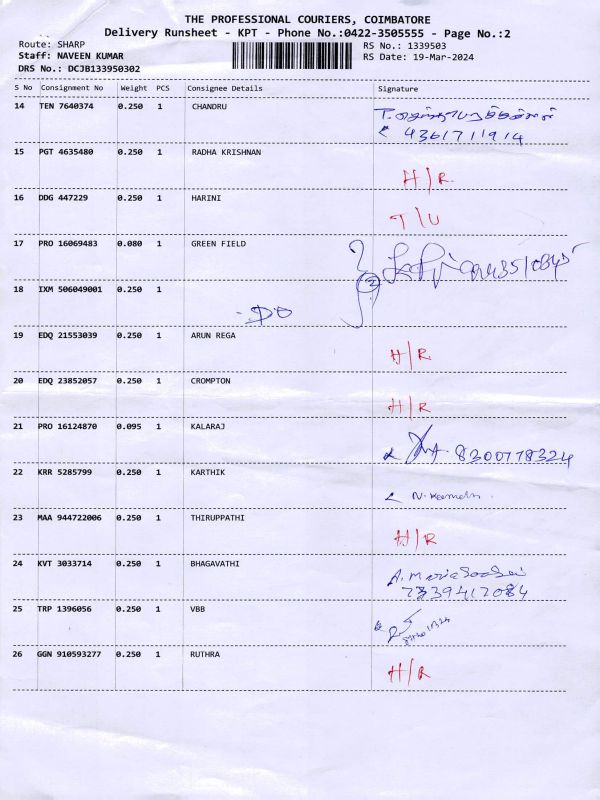 THE PROFESSIONAL COURIERS, COIMBATORE
Delivery Runsheet - KPT - Phone No.:0422-3505555 - Page No.:2
Route: SHARP RS No.: 1339503
Staff: NAVEEN KUMAR RS Date: 19-Mar-2024
DRS No.: DCJB133950302
S No Consignment No Weight PCS Consignee Details Signature
14 TEN 7640374 0.250 1 CHANDRU
15 PGT 4635480 0.250 1 RADHA KRISHNAN
H/R
16 DDG 447229 0.250 1 HARINI
T/U
17 PRO 16069483 0.080 1 GREEN FIELD
18 IXM 506049001 0.250 1
2
- DO
19 EDQ 21553039 0.250 1 ARUN REGA
H/R
20 EDQ 23852057 0.250 1 CROMPTON
H/R
21 PRO 16124870 0.095 1 KALARAJ
8300778324
22 KRR 5285799 0.250 1 KARTHIK
23 MAA 944722006 0.250 1 THIRUPPATHI
H/R
24 KVT 3033714 0.250 1 BHAGAVATHI
25 TRP 1396056 0.250 1 VBB
26 GGN 910593277 0.250 1 RUTHRA
H/R